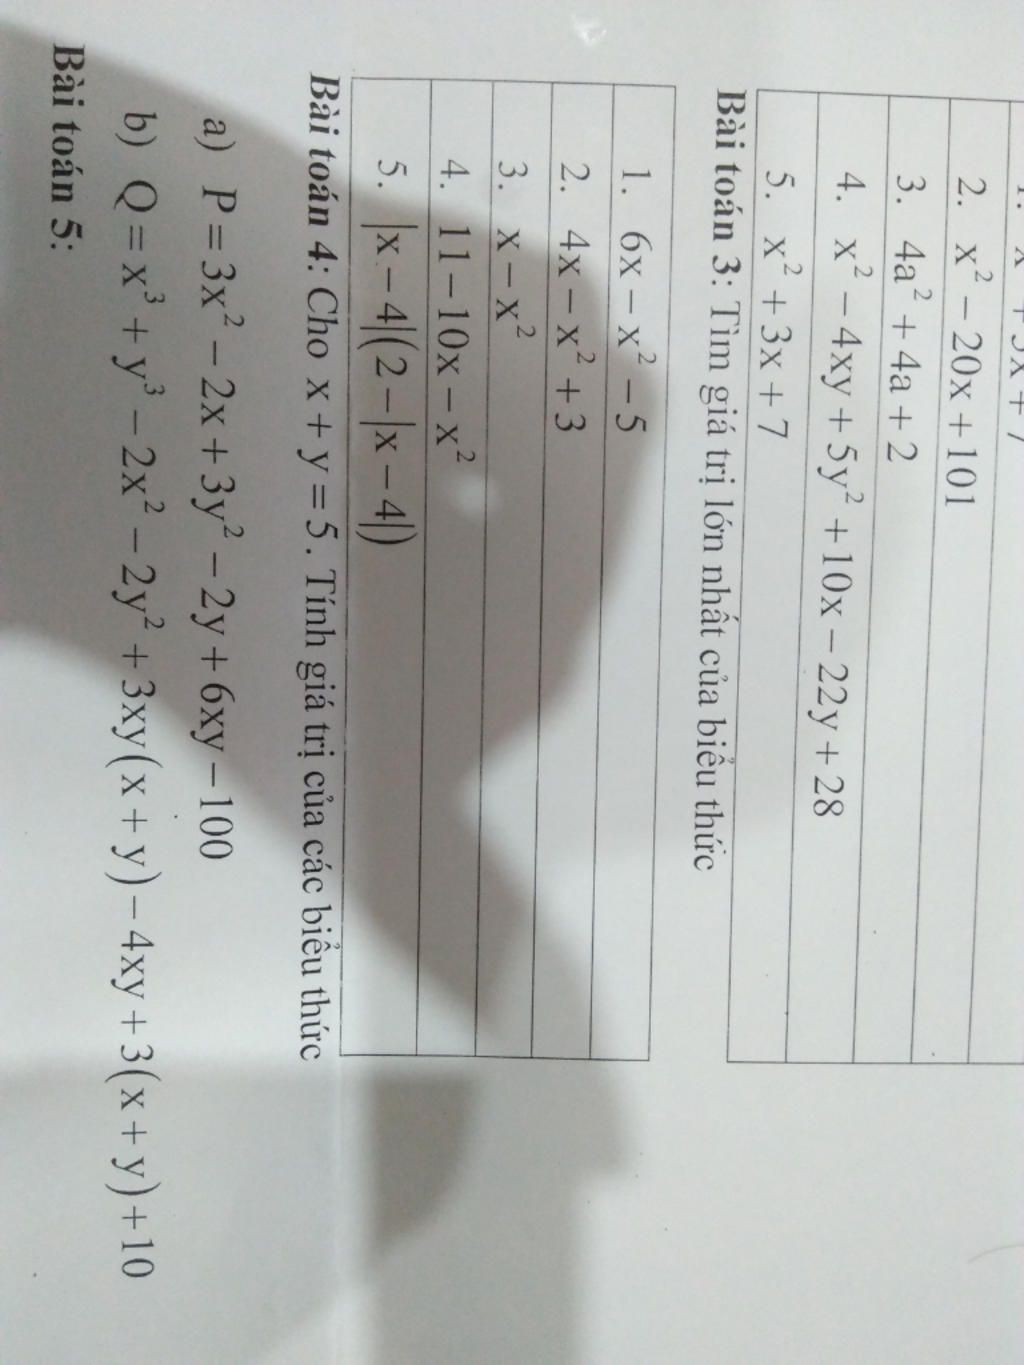 2. x² − 20x + 101
3. 4a² + 4a + 2
4. x² − 4xy + 5y² + 10x − 22y + 28
5. x² + 3x + 7
Bài toán 3: Tìm giá trị lớn nhất của biểu thức
1. 6x − x² − 5
2. 4x − x² + 3
3. x − x²
4. 11 − 10x − x²
5. |x − 4|(2 − |x − 4|)
Bài toán 4: Cho x + y = 5. Tính giá trị của các biểu thức
a) P = 3x² − 2x + 3y² − 2y + 6xy − 100
b) Q = x³ + y³ − 2x² − 2y² + 3xy(x + y) − 4xy + 3(x + y) + 10
Bài toán 5: